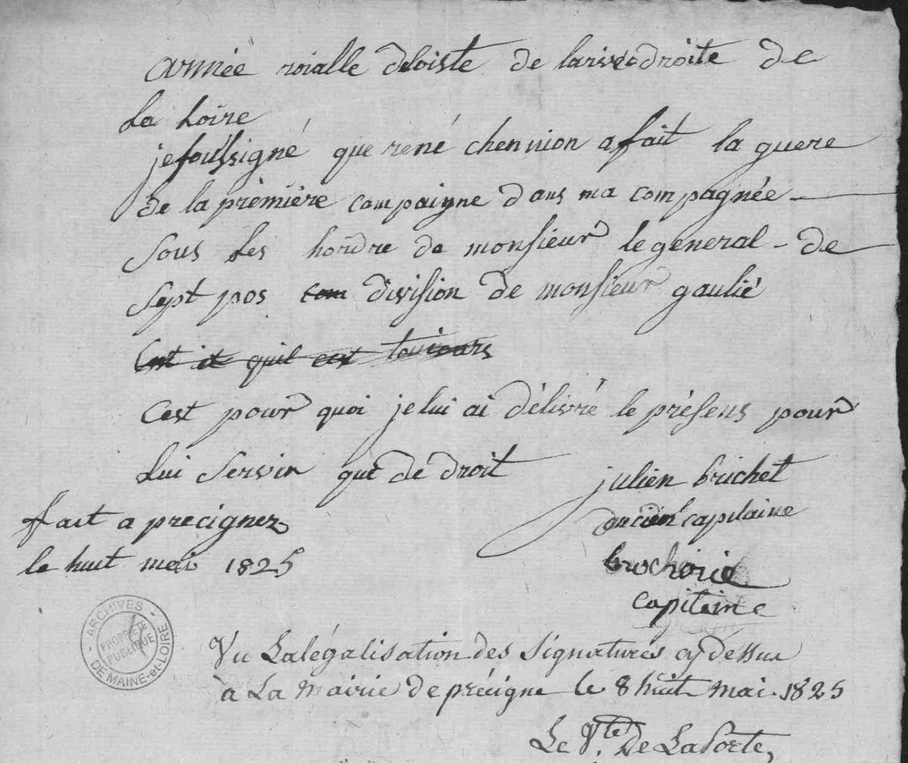 armée roialle de loiste de la rive droite de
La Loire
je soussigné que rené chennion a fait la guere
de la première compaigne dans ma compagnée
Sous Les hordre de monsieur le general de
Sept pos com division de monsieur gaulié
quil est toujours
Cest pour quoi je lui ai délivré le présens pour
Lui Servir que de droit
julien brichet
fait a precignez
ancien capitaine
le huit mai 1825
capitaine
ARCHIVES DE MAINE-et-LOIRE
PROPRIÉTÉ PUBLIQUE
Vu La légalisation des Signatures cy dessus
à La Mairie de précigne le 8 huit mai 1825
Le Vte De LaPorte,